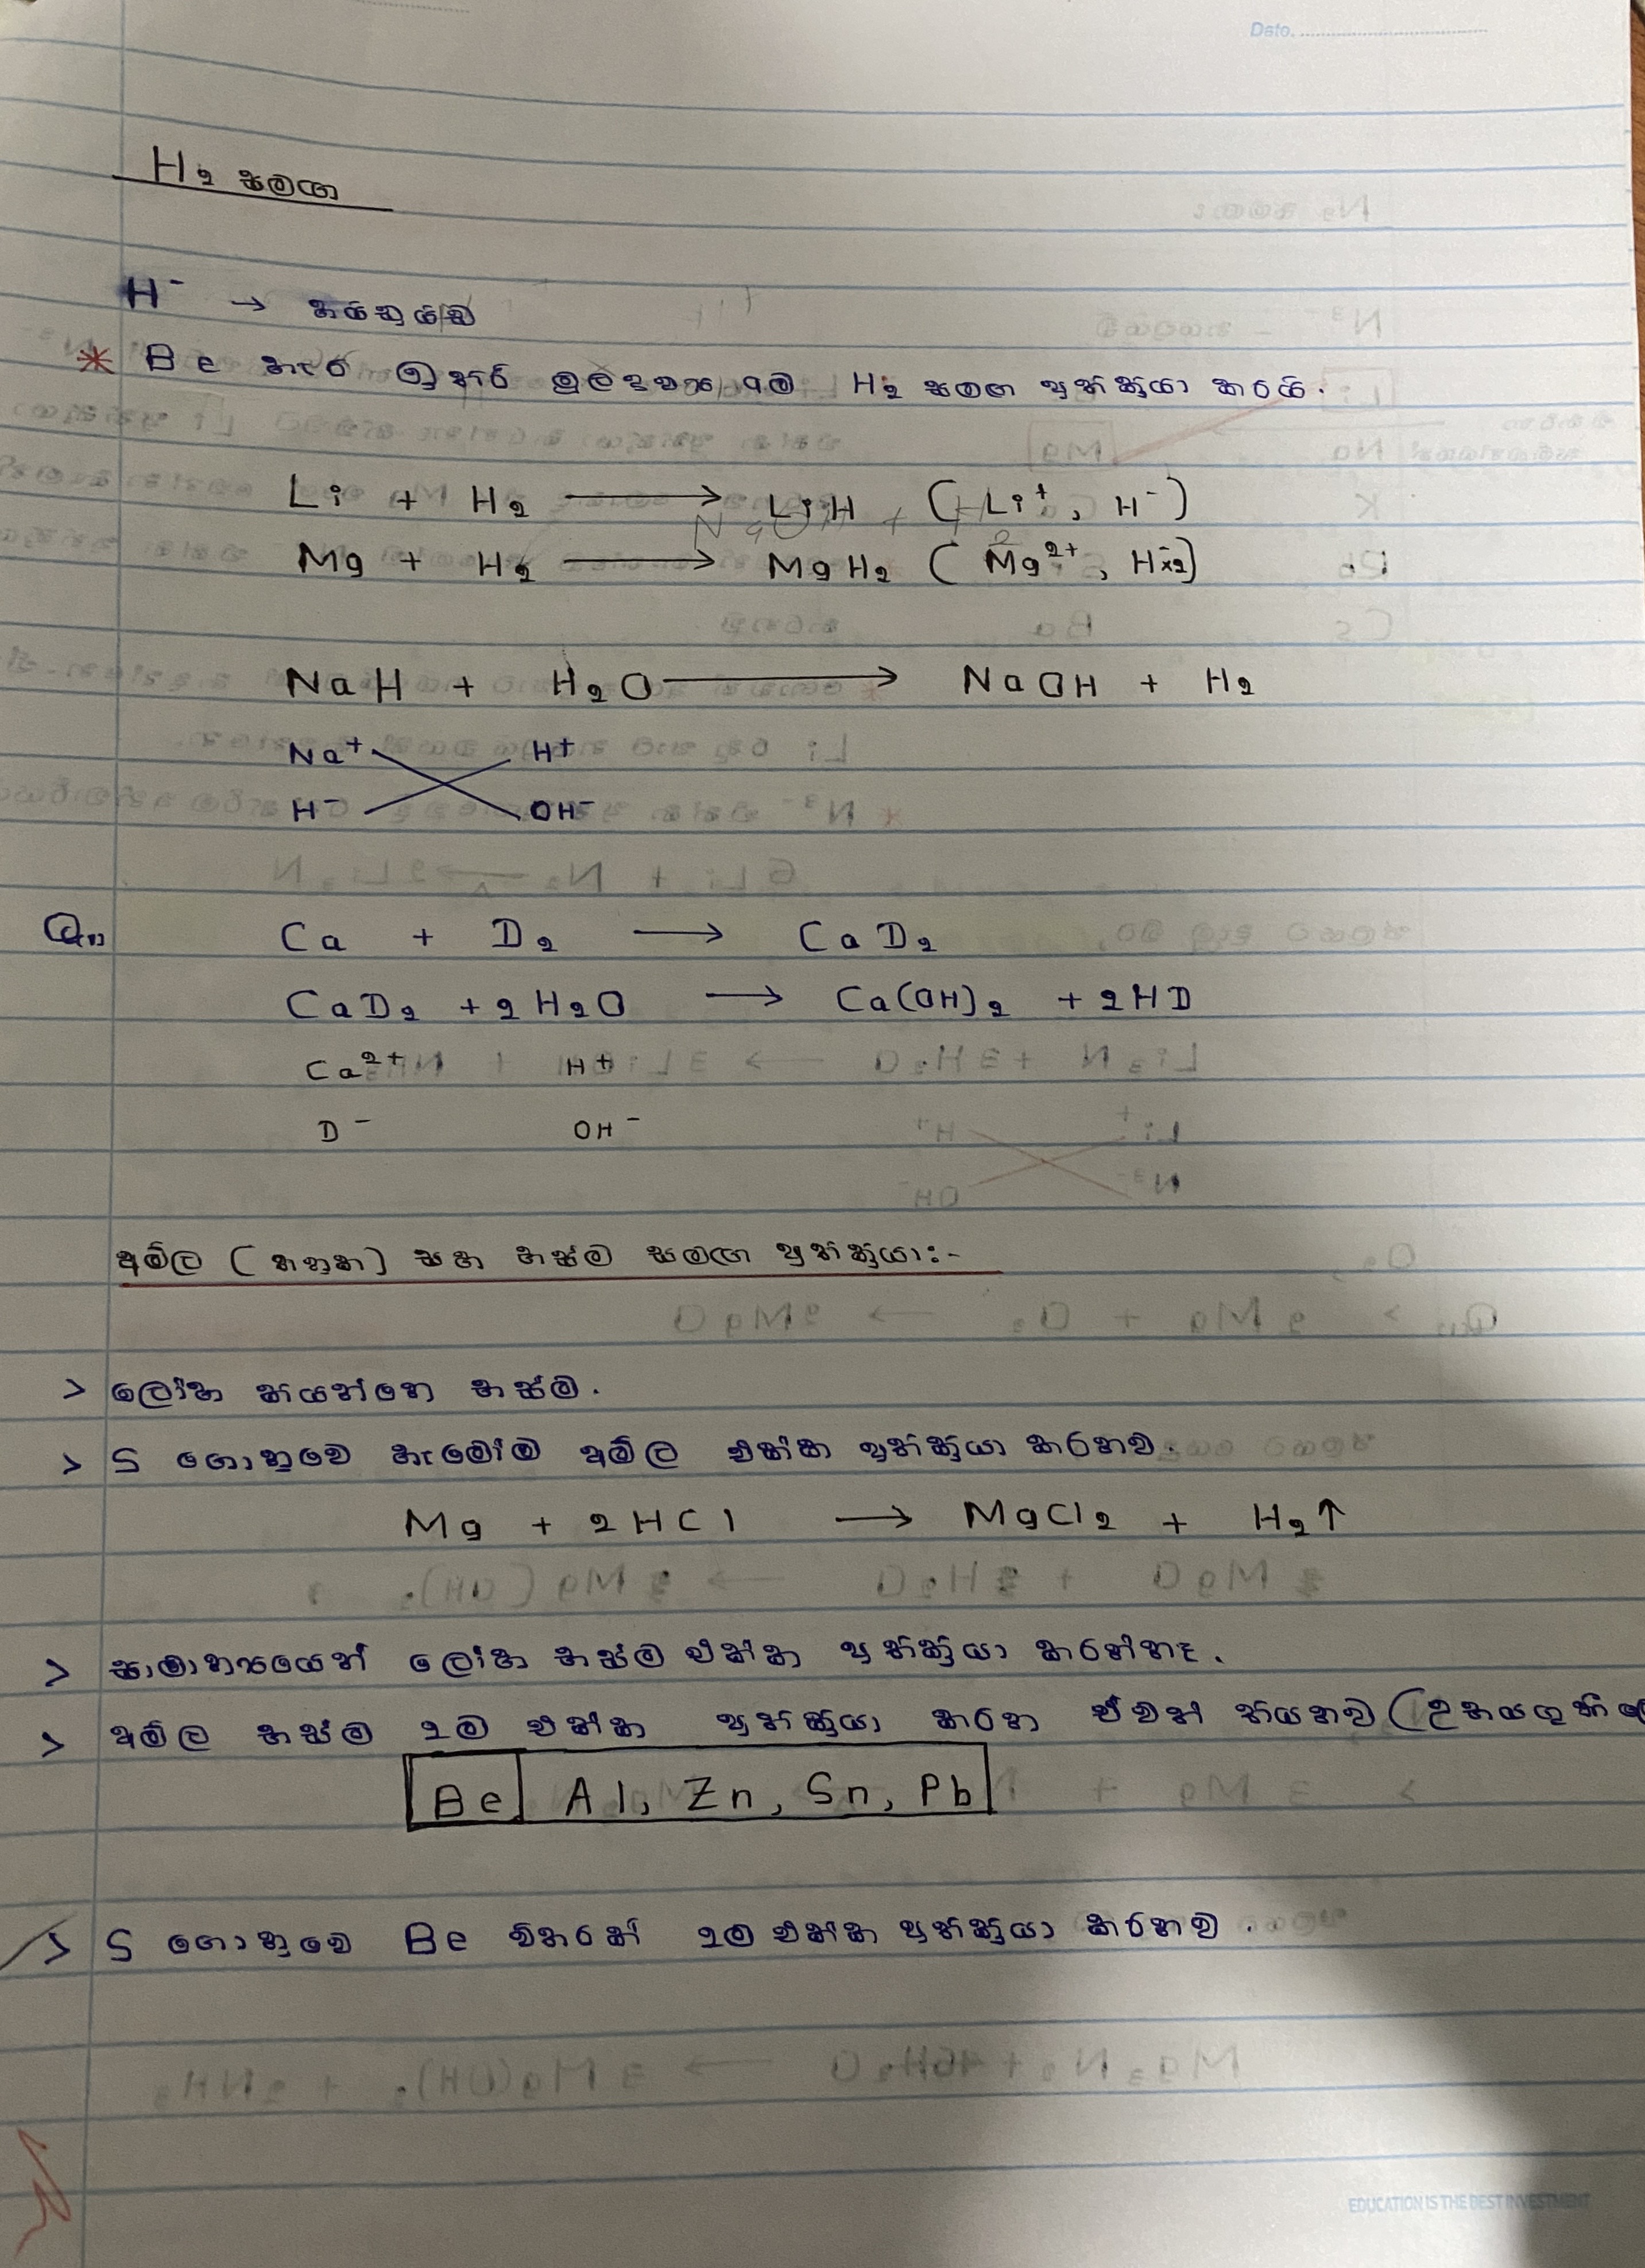 Date.
H₂ සමඟ
H⁻ → හයිඩ්‍රයිඩ්
* Be හැර ඉතිරි මූලද්‍රව්‍ය H₂ සමඟ ප්‍රතික්‍රියා කරයි.
Li + H₂ ⟶ LiH (Li⁺, H⁻)
Mg + H₂ ⟶ MgH₂ (Mg²⁺, H⁻×2)
NaH + H₂O ⟶ NaOH + H₂
Na⁺ H⁺
H⁻ OH⁻
Ca + D₂ ⟶ CaD₂
CaD₂ + 2H₂O ⟶ Ca(OH)₂ + 2HD
Ca²⁺ H⁺
D⁻ OH⁻
අම්ල (තනුක) සහ භස්ම සමඟ ප්‍රතික්‍රියා:-
> ලෝහ කියන්නෙ භස්ම.
> S ගොනුවෙ හැමෝම අම්ල එක්ක ප්‍රතික්‍රියා කරනව.
Mg + 2HCl ⟶ MgCl₂ + H₂↑
> සාමාන්‍යයෙන් ලෝහ භස්ම එක්ක ප්‍රතික්‍රියා කරන්නෑ.
> අම්ල භස්ම 2ම එක්ක ප්‍රතික්‍රියා කරන ඒවත් තියනව
Be Al, Zn, Sn, Pb
> S ගොනුවෙ Be විතරක් 2ම එක්ක ප්‍රතික්‍රියා කරනව.
EDUCATION IS THE BEST INVESTMENT